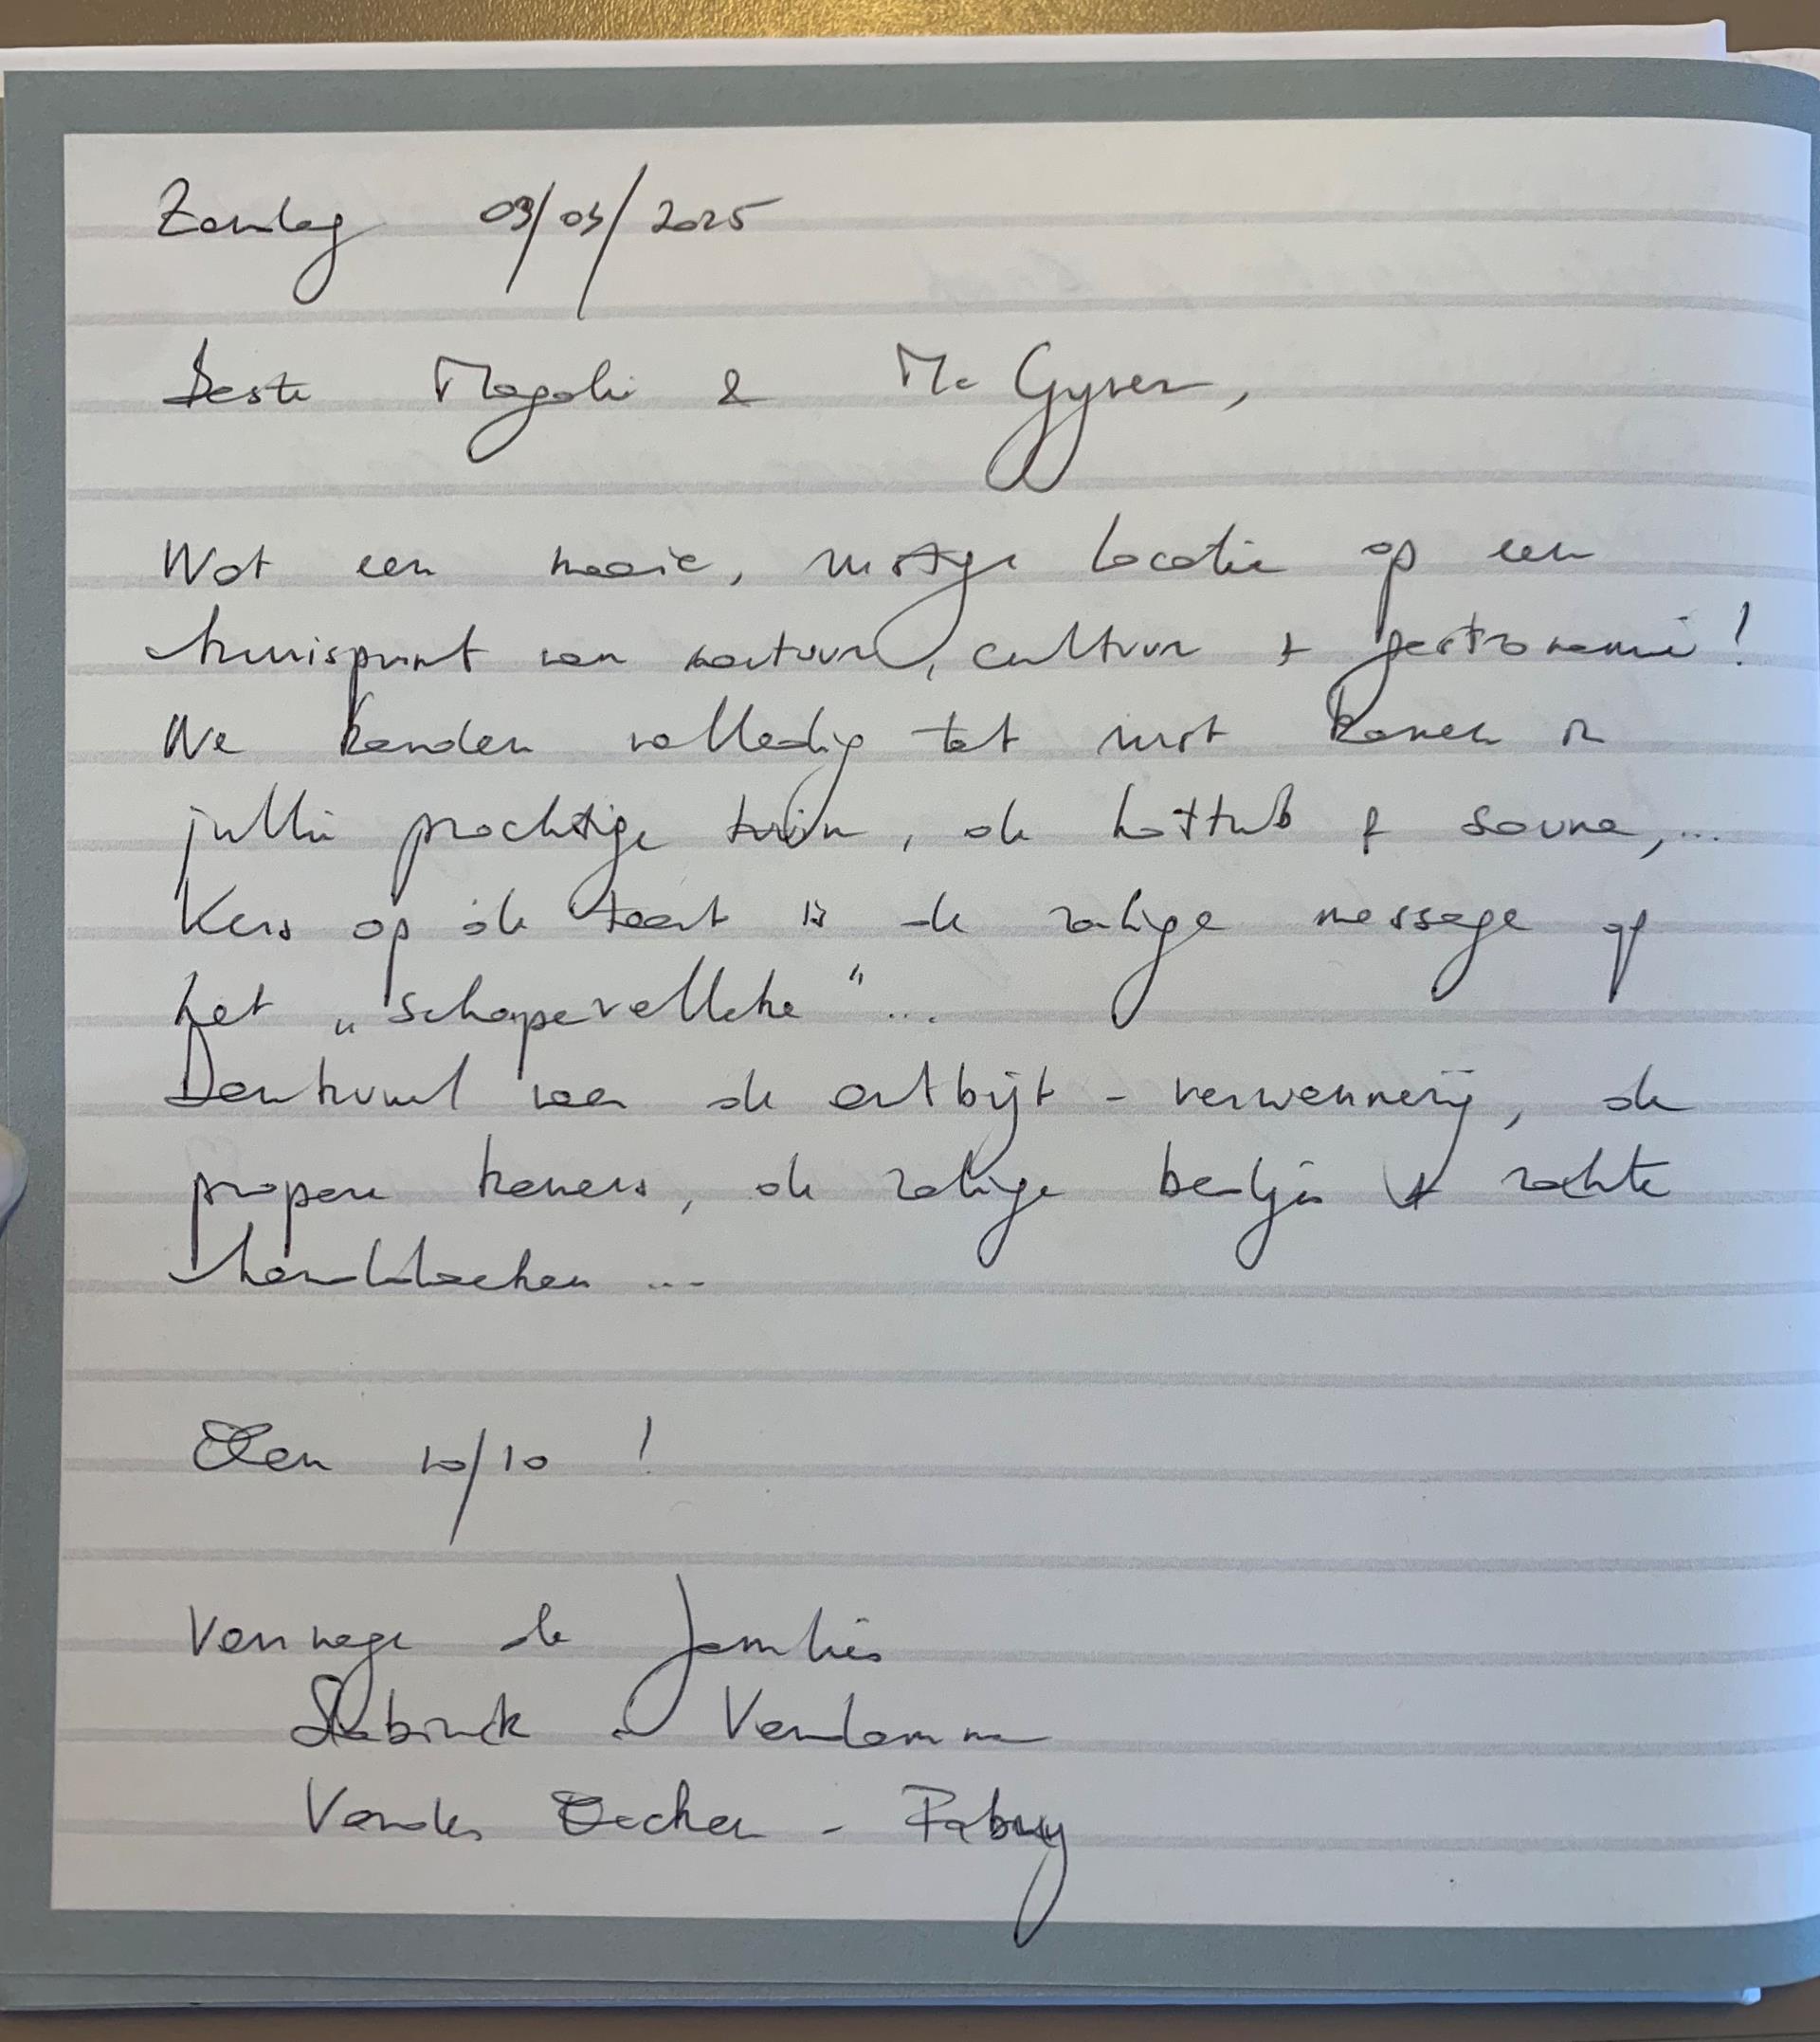 Zondag 09/03/2025
Beste Magali & Mc Gyver,
Wat een mooie, rustige locatie op een
kruispunt van natuur, cultuur + gastronomie!
We konden volledig tot rust komen in
jullie prachtige tuin, de hottub & sauna,...
Kers op de taart is de zalige massage op
het „schapevelleke" ...
Dankuwel voor de ontbijt-verwennerij, de
propere kamers, de zalige bedjes + zachte
handdoeken ...
Een 10/10 !
Vanwege de families
Vandamme
Vander - Fabry